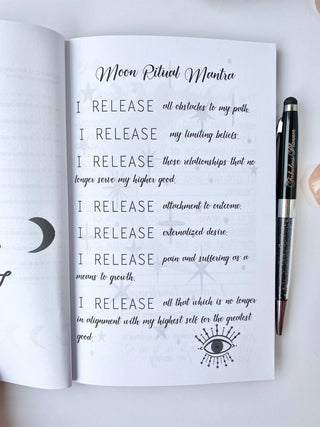 Moon Ritual Mantra
I RELEASE all obstacles to my path.
I RELEASE my limiting beliefs.
I RELEASE those relationships that no
longer serve my higher good.
I RELEASE attachment to outcome.
I RELEASE externalized desire.
I RELEASE pain and suffering as a
means to growth.
I RELEASE all that which is no longer
in alignment with my highest self for the greatest
good.